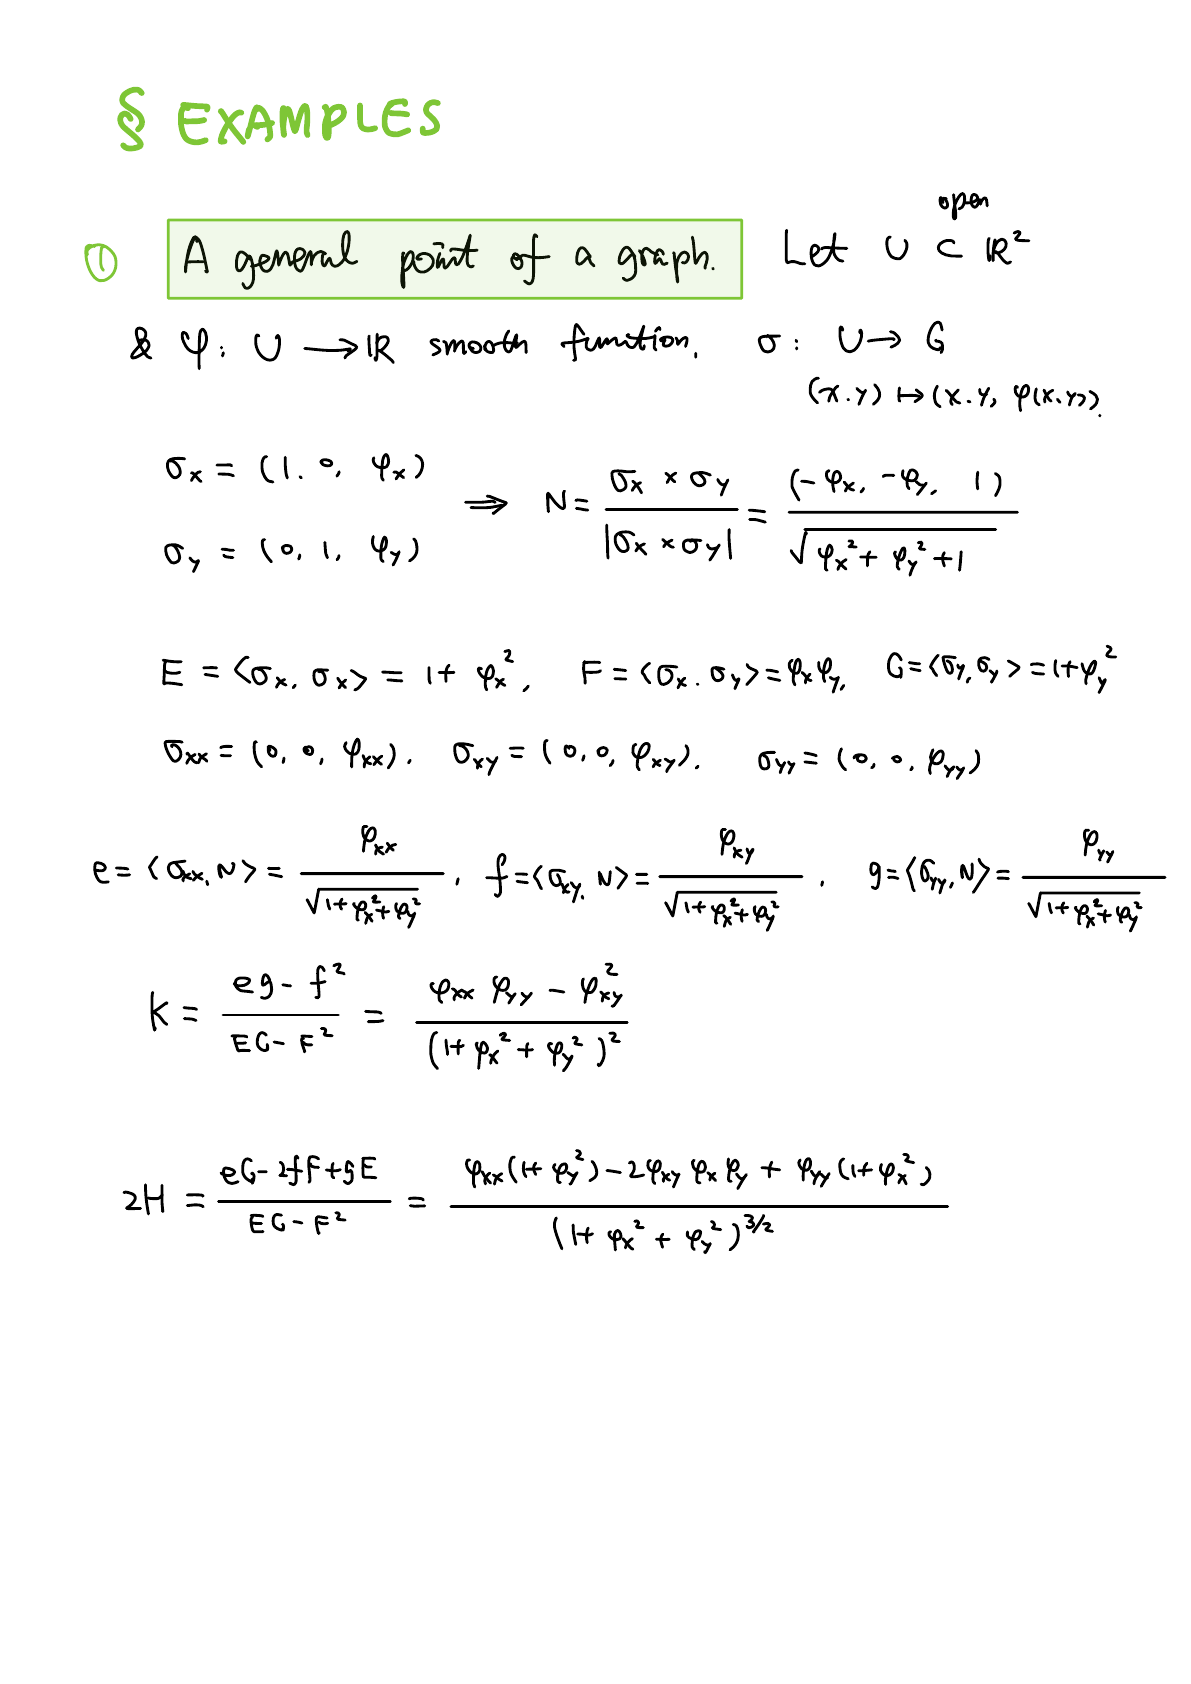 § EXAMPLES
① A general point of a graph. Let U ⊂ ℝ² open
& φ: U → ℝ smooth function. σ: U → G
(x.y) ↦ (x.y, φ(x.y)).
σₓ = (1. 0, φₓ)
σ_y = (0, 1, φ_y)
⇒ N = (σ_x × σ_y) / |σ_x × σ_y| = (-φ_x, -φ_y, 1) / √(φ_x² + φ_y² + 1)
E = <σ_x, σ_x> = 1 + φ_x², F = <σ_x . σ_y> = φ_x φ_y, G = <σ_y, σ_y> = 1 + φ_y²
σ_xx = (0, 0, φ_xx). σ_xy = (0, 0, φ_xy). σ_yy = (0, 0, φ_yy)
e = <σ_xx, N> = φ_xx / √(1 + φ_x² + φ_y²), f = <σ_xy, N> = φ_xy / √(1 + φ_x² + φ_y²), g = <σ_yy, N> = φ_yy / √(1 + φ_x² + φ_y²)
K = (eg - f²) / (EG - F²) = (φ_xx φ_yy - φ_xy²) / (1 + φ_x² + φ_y²)²
2H = (eG - 2fF + gE) / (EG - F²) = (φ_xx (1 + φ_y²) - 2φ_xy φ_x φ_y + φ_yy (1 + φ_x²)) / (1 + φ_x² + φ_y²)^(3/2)